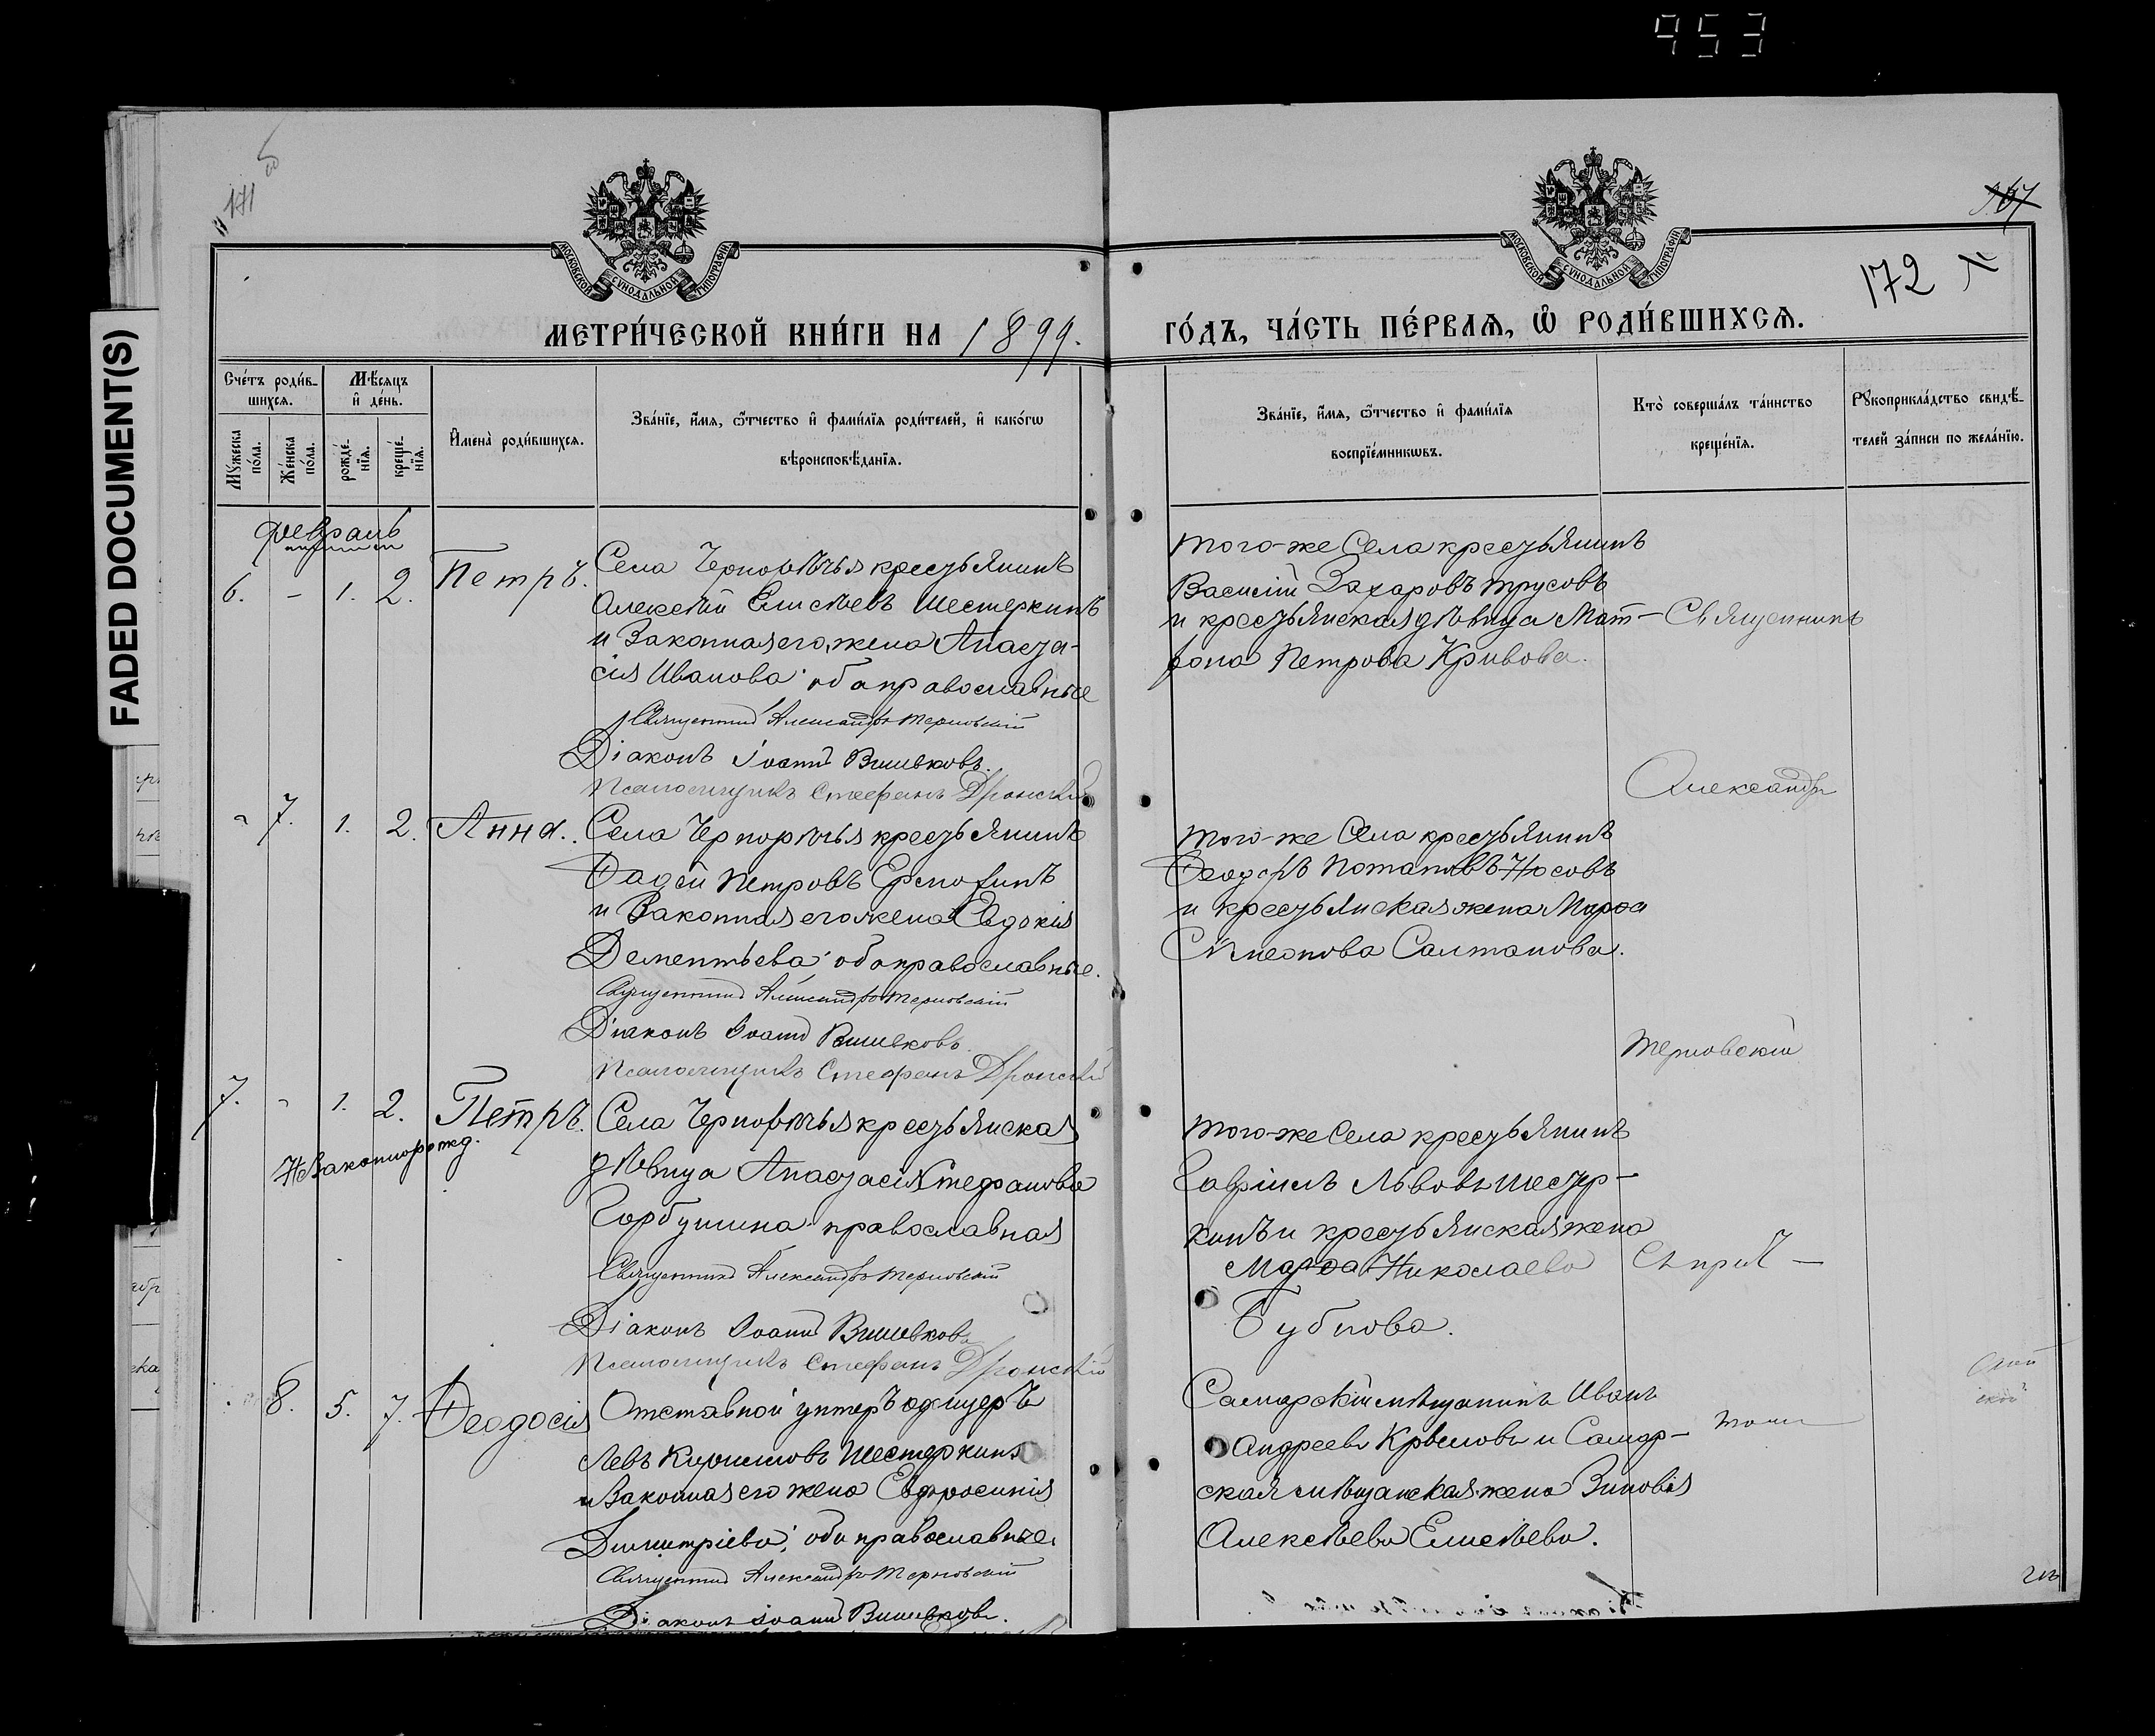 953
FADED DOCUMENT(S)
171
МОСКОВСКОЙ СУНОДАЛЬНОЙ ТИПОГРАФІИ
МОСКОВСКОЙ СУНОДАЛЬНОЙ ТИПОГРАФІИ
172
МЕТРИ́ЧЕСКОЙ КНИ́ГИ НА 1899.
ГО́ДЪ, ЧА́СТЬ ПЕ́РВАѦ, Ѡ РОДИ́ВШИХСѦ.
Сче́тъ роди́в-
шихсѧ.
Мѣ́сяцъ
и де́нь.
Мꙋ́жеска
по́ла.
Же́нска
по́ла.
рожде́-
нїѧ.
креще́-
нїѧ.
И҆мена̀ роди́вшихсѧ.
Зва́нїе, и҆́мѧ, ѻ҆́тчество и҆ фами́лїѧ роди́телей, и҆ како́гѡ
вѣроисповѣ́данїѧ.
Зва́нїе, и҆́мѧ, ѻ҆́тчество и҆ фами́лїѧ
воспрїе́мникѡвъ.
Кто̀ соверша́лъ та́инство
креще́нїѧ.
Рꙋкоприкла́дство свидѣ́-
телей за́писи по жела́нїю.
Февраль
6. - 1. 2. Петръ.
Села Чернорѣчья крестьянинъ
Алексѣй Елисѣевъ Шестеркинъ
и законная его жена Анаста-
сія Иванова: оба православные
Священникъ Александръ Терновскій
Діаконъ Іоаннъ Вишевковъ.
Псаломщикъ Стефанъ Дронскій
того-же Села крестьянинъ
Василій Захаровъ Трусовъ
и крестьянская дѣвица Мат-
рона Петрова Кривова.
Священникъ
Александръ
- 7. 1. 2. Анна.
Села Чернорѣчья крестьянинъ
Фадей Петровъ Ермохинъ
и законная его жена Евдокія
Дементьева: оба православные.
Священникъ Александръ Терновскій
Діаконъ Іоаннъ Вишевковъ.
Псаломщикъ Стефанъ Дронскій
того-же Села крестьянинъ
Феодоръ Потаповъ Носовъ
и крестьянская жена Марѳа
Симеонова Салтанова.
Терновскій
7. - 1. 2. Петръ.
Незаконнорожд.
Села Чернорѣчья крестьянская
дѣвица Анастасія Стефанова
Горбушина: православная
Священникъ Александръ Терновскій
Діаконъ Іоаннъ Вишевковъ
Псаломщикъ Стефанъ Дронскій
того-же Села крестьянинъ
Гавріилъ Львовъ Шестер-
кинъ и крестьянская жена
Марѳа Николаева
Бубнова.
Съ прич-
8. 5. 7. Феодосія
Отставной унтеръ офицеръ
Левъ Кирилловъ Шестеркинъ
и законная его жена Евфросинія
Димитріева: оба православные.
Священникъ Александръ Терновскій
Діаконъ Іоаннъ Вишевковъ.
Самарскій мѣщанинъ Иванъ
Андреевъ Крыловъ и Самар-
ская мѣщанская жена Зиновія
Алексѣева Елисѣева.
томъ